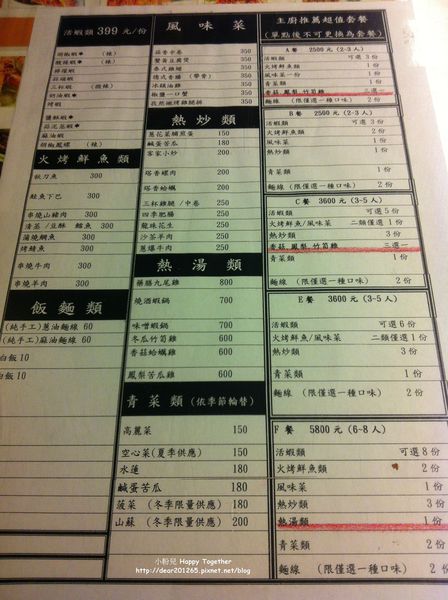 活蝦類 399 元/份
胡椒蝦＊ (辣)
三杯蝦 (微辣)
胡油蝦＊
烤蝦
鹽酥蝦＊
蒜泥蒸蝦＊
麻油蝦
胡椒鳳螺 (辣)
火烤鮮魚類
秋刀魚 300
鮭魚下巴 300
串燒山豬肉 300
清蒸/豆酥 鱈魚 300
蒲燒鯛魚 300
烤鯖魚 300
串燒牛肉 300
串燒羊肉 300
飯麵類
(純手工)蔥油麵線 60
(純手工)麻油麵線 60
白飯 10
白飯 10
風味菜
蒜香中卷 350
蟹黃豆腐煲 350
泰式雞翅 350
德式香腸 (學香) 350
冰鎮油雞 350
椒鹽一口蟹 350
我然嫩烤雞腿排 350
熱炒類
蔥花菜脯煎蛋 150
鹹蛋苦瓜 180
客家小炒 180
塔香螺肉 180
塔香蛤蠣 180
三杯雞腱/中卷 250
四季肥腸 250
龍珠花生 250
沙茶羊肉 250
蔥爆牛肉 250
熱湯類
藥膳九尾雞 800
燒酒蝦鍋 700
味噌蝦鍋 700
冬瓜竹筍雞 600
香菇蛤蠣雞 600
鳳梨苦瓜雞 600
青菜類 (依季節輪替)
高麗菜 150
空心菜(夏季供應) 150
水蓮 180
鹹蛋苦瓜 180
菠菜 (冬季限量供應) 180
山蘇 (冬季限量供應) 200
主廚推薦超值套餐
(單點後不可更換為套餐)
A餐 2500 元 (2-3人)
活蝦類 可選 3 份
火烤鮮魚類 1 份
風味菜一份 1 份
青菜類 1 份
香菇 鳳梨 竹筍雞 三選一
麵線 (限僅選一種口味) 2份
B餐 2500 元 (2-3人)
活蝦類 可選 3份
火烤鮮魚類 2份
風味菜 1份
熱炒類 1份
青菜類 2份
麵線 (限僅選一種口味) 2份
C餐 3600 元 (3-5人)
活蝦類 可選 5 份
火烤鮮魚/風味菜 二類僅選 1份
香菇 鳳梨 竹筍雞 三選一
青菜類 1份
麵線 (限僅選一種口味) 2份
E 餐 3600 元 (3-5人)
活蝦類 可選 6 份
火烤鮮魚/風味菜 二類僅選 1份
熱炒類 3 份
青菜類 1 份
麵線 (限僅選一種口味) 2 份
F 餐 5800 元 (6-8人)
活蝦類 可選 8 份
火烤鮮魚類 2 份
風味菜 1 份
熱炒類 3 份
熱湯類 1 份
青菜類 2 份
麵線 (限僅選一種口味) 2 份
小粉兒 Happy Together
http://dear201265.pixnet.net/blog